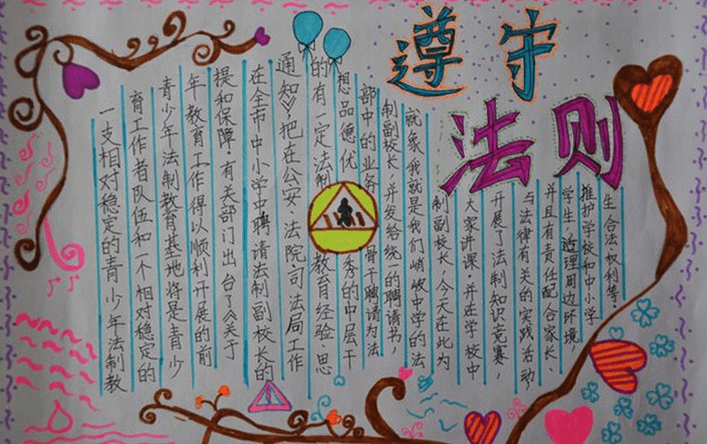 遵守
法则
一支相对稳定的青少年法制教
育工作者队伍和一个相对稳定的
青少年法制教育基地将是青少
年教育工作得以顺利开展的前
提和保障,有关部门出台了《关于
在全市中小学中聘请法制副校长的
通知》,把在公安、法院司法局工作
的有一定法制教育经验、思
想品德优秀的中层干
部中的业务骨干聘请为法
制副校长,并发给统一的聘请书,
就象我就是我们峭岐中学的法
制副校长,今天在此为
大家讲课,并在学校中
开展了法制知识竞赛,
与法律有关的实践活动
并且有责任配合家长、
学生,理周边环境,
推护学校和中小学
生合法权利等